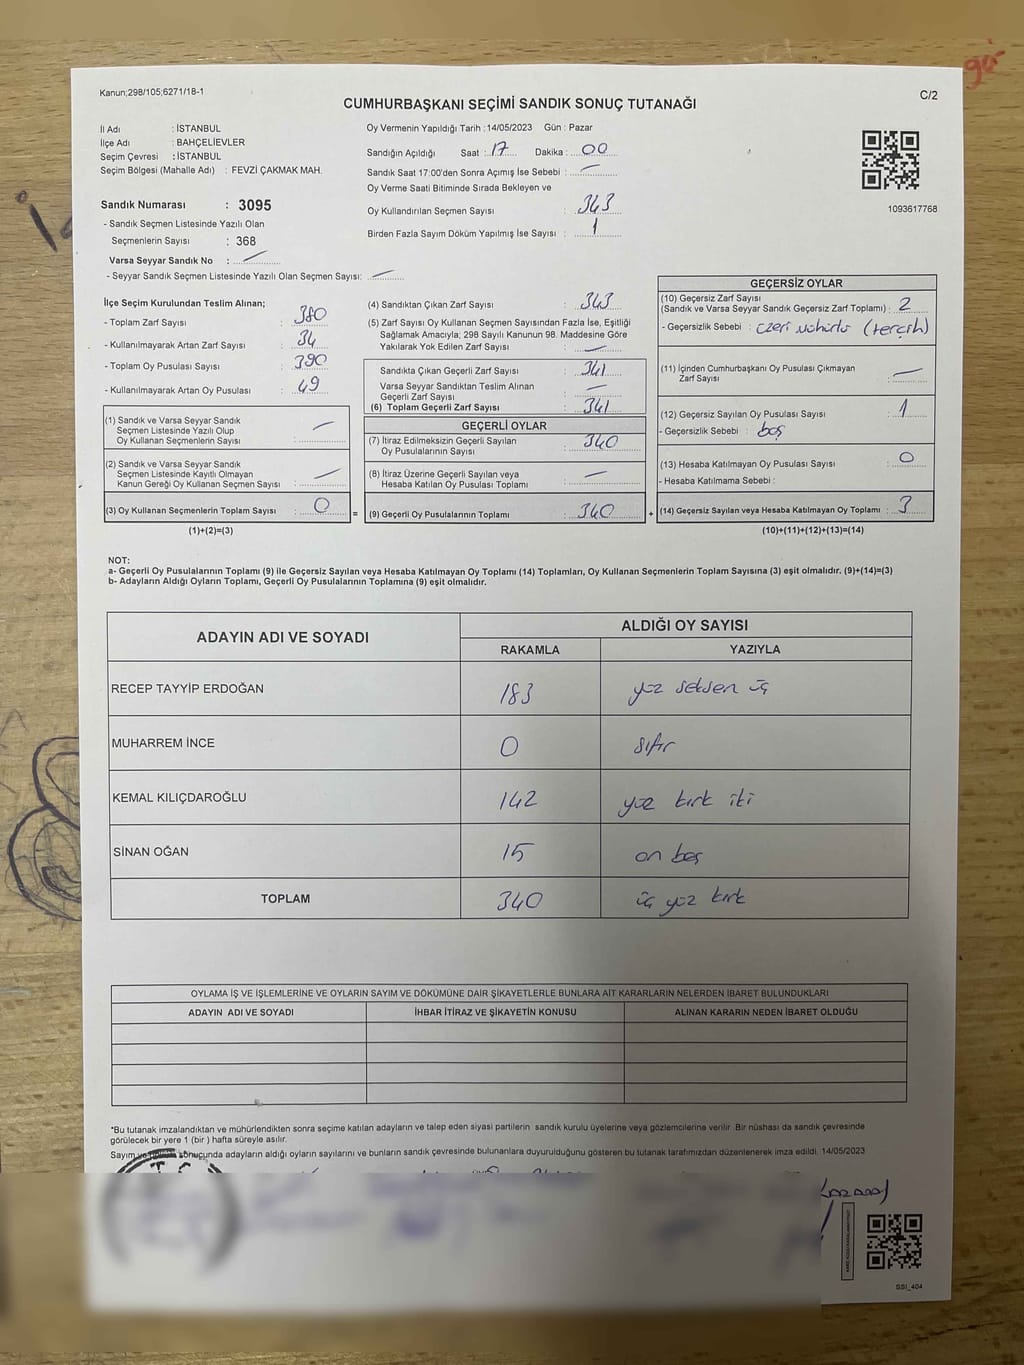 Kanun;298/105;6271/18-1
CUMHURBAŞKANI SEÇİMİ SANDIK SONUÇ TUTANAĞI
C/2
İl Adı : İSTANBUL
İlçe Adı : BAHÇELİEVLER
Seçim Çevresi : İSTANBUL
Seçim Bölgesi (Mahalle Adı) : FEVZİ ÇAKMAK MAH.
Sandık Numarası : 3095
- Sandık Seçmen Listesinde Yazılı Olan
Seçmenlerin Sayısı : 368
Varsa Seyyar Sandık No : —
- Seyyar Sandık Seçmen Listesinde Yazılı Olan Seçmen Sayısı: —
Oy Vermenin Yapıldığı Tarih : 14/05/2023 Gün : Pazar
Sandığın Açıldığı Saat : 17 Dakika : 00
Sandık Saat 17:00'den Sonra Açımış İse Sebebi : —
Oy Verme Saati Bitiminde Sırada Bekleyen ve
Oy Kullandırılan Seçmen Sayısı : 343
Birden Fazla Sayım Döküm Yapılmış İse Sayısı : 1
1093617768
İlçe Seçim Kurulundan Teslim Alınan;
- Toplam Zarf Sayısı : 380
- Kullanılmayarak Artan Zarf Sayısı : 34
- Toplam Oy Pusulası Sayısı : 390
- Kullanılmayarak Artan Oy Pusulası : 49
(1) Sandık ve Varsa Seyyar Sandık
Seçmen Listesinde Yazılı Olup
Oy Kullanan Seçmenlerin Sayısı : —
(2) Sandık ve Varsa Seyyar Sandık
Seçmen Listesinde Kayıtlı Olmayan
Kanun Gereği Oy Kullanan Seçmen Sayısı : —
(3) Oy Kullanan Seçmenlerin Toplam Sayısı : 0
(1)+(2)=(3)
(4) Sandıktan Çıkan Zarf Sayısı : 343
(5) Zarf Sayısı Oy Kullanan Seçmen Sayısından Fazla İse, Eşitliği
Sağlamak Amacıyla; 298 Sayılı Kanunun 98. Maddesine Göre
Yakılarak Yok Edilen Zarf Sayısı : —
Sandıkta Çıkan Geçerli Zarf Sayısı : 341
Varsa Seyyar Sandıktan Teslim Alınan
Geçerli Zarf Sayısı : —
(6) Toplam Geçerli Zarf Sayısı : 341
GEÇERLİ OYLAR
(7) İtiraz Edilmeksizin Geçerli Sayılan
Oy Pusulalarının Sayısı : 340
(8) İtiraz Üzerine Geçerli Sayılan veya
Hesaba Katılan Oy Pusulası Toplamı : —
= (9) Geçerli Oy Pusulalarının Toplamı : 340 +
GEÇERSİZ OYLAR
(10) Geçersiz Zarf Sayısı
(Sandık ve Varsa Seyyar Sandık Geçersiz Zarf Toplamı) : 2
- Geçersizlik Sebebi : üzeri mühürlü (tercih)
(11) İçinden Cumhurbaşkanı Oy Pusulası Çıkmayan
Zarf Sayısı : —
(12) Geçersiz Sayılan Oy Pusulası Sayısı : 1
- Geçersizlik Sebebi : boş
(13) Hesaba Katılmayan Oy Pusulası Sayısı : 0
- Hesaba Katılmama Sebebi :
(14) Geçersiz Sayılan veya Hesaba Katılmayan Oy Toplamı : 3
(10)+(11)+(12)+(13)=(14)
NOT:
a- Geçerli Oy Pusulalarının Toplamı (9) ile Geçersiz Sayılan veya Hesaba Katılmayan Oy Toplamı (14) Toplamları, Oy Kullanan Seçmenlerin Toplam Sayısına (3) eşit olmalıdır. (9)+(14)=(3)
b- Adayların Aldığı Oyların Toplamı, Geçerli Oy Pusulalarının Toplamına (9) eşit olmalıdır.
ADAYIN ADI VE SOYADI
ALDIĞI OY SAYISI
RAKAMLA YAZIYLA
RECEP TAYYİP ERDOĞAN 183 yüz seksen üç
MUHARREM İNCE 0 sıfır
KEMAL KILIÇDAROĞLU 142 yüz kırk iki
SİNAN OĞAN 15 on beş
TOPLAM 340 üç yüz kırk
OYLAMA İŞ VE İŞLEMLERİNE VE OYLARIN SAYIM VE DÖKÜMÜNE DAİR ŞİKAYETLERLE BUNLARA AİT KARARLARIN NELERDEN İBARET BULUNDUKLARI
ADAYIN ADI VE SOYADI İHBAR İTİRAZ VE ŞİKAYETİN KONUSU ALINAN KARARIN NEDEN İBARET OLDUĞU
*Bu tutanak imzalandıktan ve mühürlendikten sonra seçime katılan adayların ve talep eden siyasi partilerin sandık kurulu üyelerine veya gözlemcilerine verilir. Bir nüshası da sandık çevresinde
görülecek bir yere 1 (bir ) hafta süreyle asılır.
Sayım ve sonucunda adayların aldığı oyların sayılarını ve bunların sandık çevresinde bulunanlara duyurulduğunu gösteren bu tutanak tarafımızdan düzenlenerek imza edildi. 14/05/2023
T.C.
SSİ_404